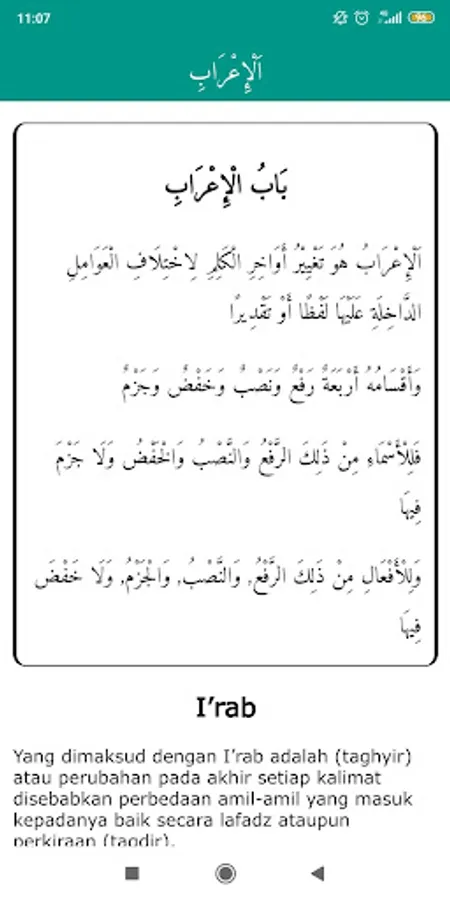 11:07
اَلْإِعْرَابِ
بَابُ الْإِعْرَابِ
اَلْإِعْرَابُ هُوَ تَغْيِيْرُ أَوَاخِرِ الْكَلِمِ لِاخْتِلَافِ الْعَوَامِلِ
الدَّاخِلَةِ عَلَيْهَا لَفْظًا أَوْ تَقْدِيرًا
وَأَقْسَامُهُ أَرْبَعَةٌ رَفْعٌ وَنَصْبٌ وَخَفْضٌ وَجَزْمٌ
فَلِلْأَسْمَاءِ مِنْ ذَلِكَ الرَّفْعُ وَالنَّصْبُ وَالْخَفْضُ وَلَا جَزْمَ
فِيهَا
وَلِلْأَفْعَالِ مِنْ ذَلِكَ الرَّفْعُ, وَالنَّصْبُ, وَالْجَزْمُ, وَلَا خَفْضَ
فِيهَا
I'rab
Yang dimaksud dengan I'rab adalah (taghyir)
atau perubahan pada akhir setiap kalimat
disebabkan perbedaan amil-amil yang masuk
kepadanya baik secara lafadz ataupun
perkiraan (taqdir).